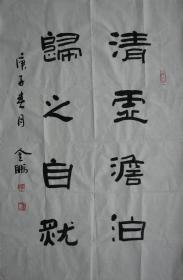 清虚澹泊
歸之自然
庚子春月
金鵬